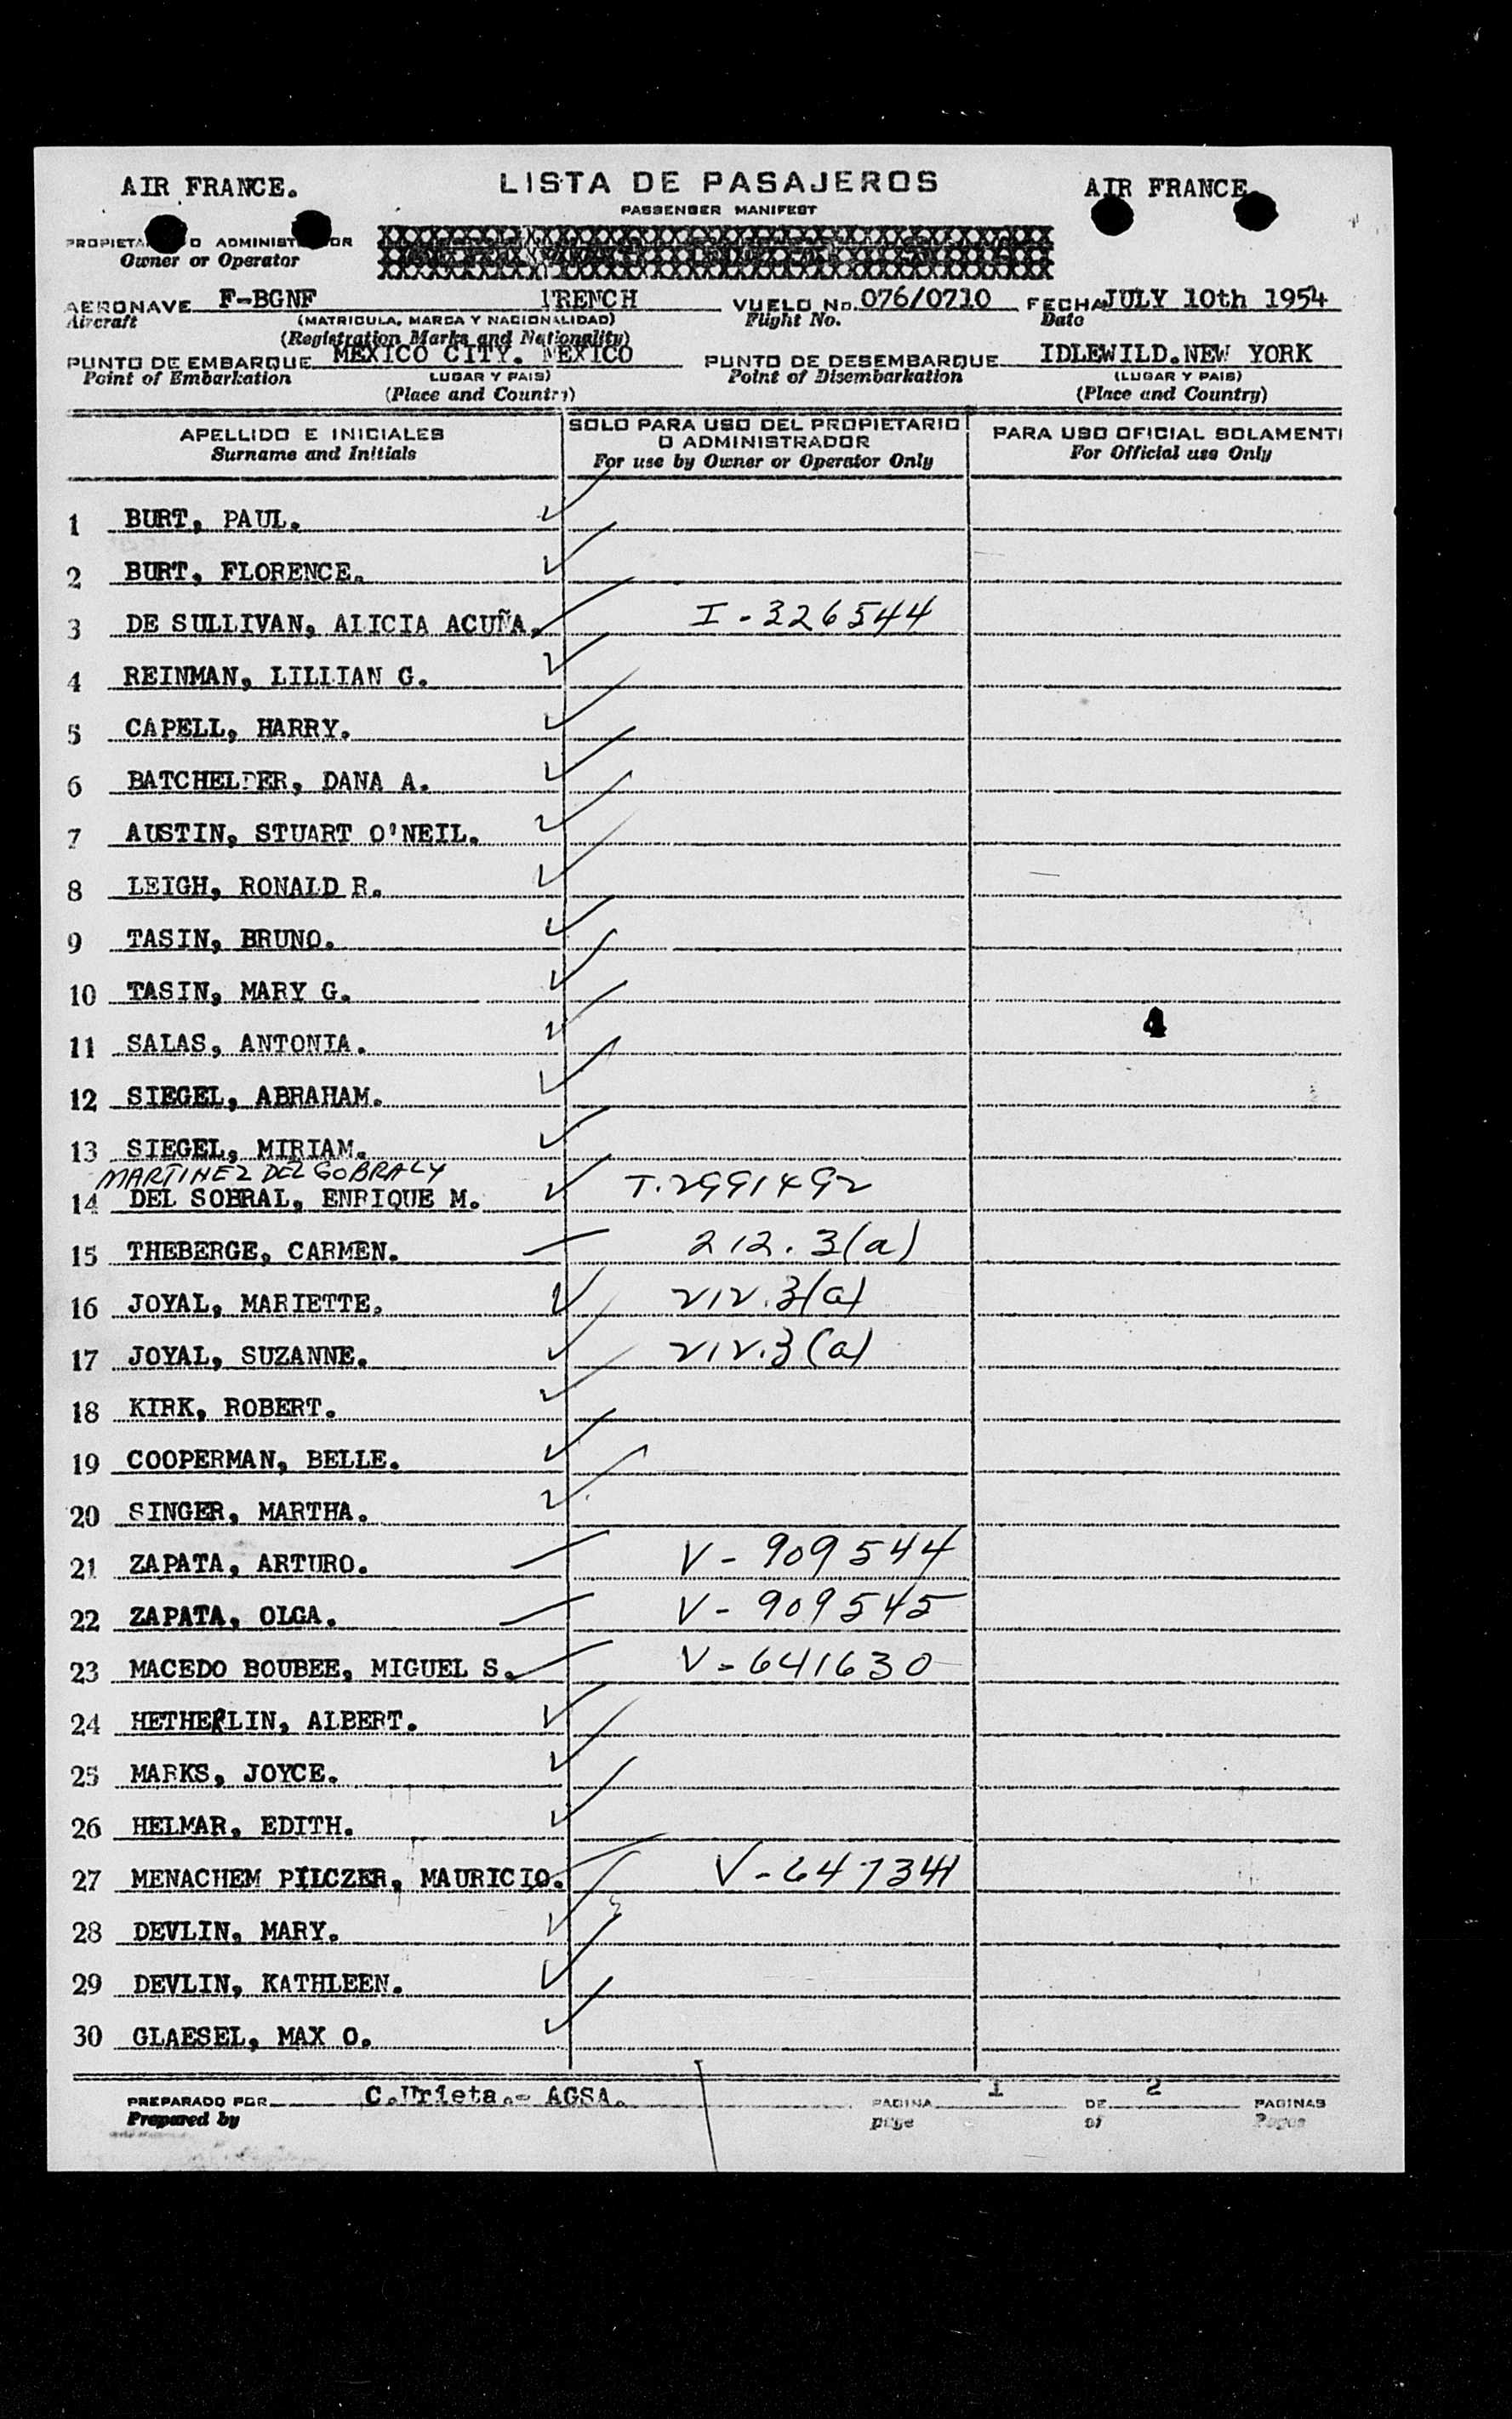 AIR FRANCE. LISTA DE PASAJEROS AIR FRANCE
PASSENGER MANIFEST
O
Owner or Operator
AERONAVE F-BGNF VUELO No. 076/0710 FECHA JULY 10th 1954
Aircraft (MATRICULA, MARCA Y NACIONALIDAD) Flight No. Date
(Registration Marks and Nationality)
PUNTO DE EMBARQUE MEXICO CITY. MEXICO PUNTO DE DESEMBARQUE IDLEWILD.NEW YORK
Point of Embarkation LUGAR Y PAIS) Point of Disembarkation (LUGAR Y PAIS)
(Place and Country) (Place and Country)
APELLIDO E INICIALES SOLO PARA USO DEL PROPIETARIO O ADMINISTRADOR PARA USO OFICIAL SOLAMENTE
Surname and Initials For use by Owner or Operator Only For Official use Only
1 BURT, PAUL.
2 BURT, FLORENCE.
3 DE SULLIVAN, ALICIA ACUÑA. I-326544
4 REINMAN, LILLIAN G.
5 CAPELL, HARRY.
6 BATCHELDER, DANA A.
7 AUSTIN, STUART O'NEIL.
8 LEIGH, RONALD R.
9 TASIN, BRUNO.
10 TASIN, MARY G.
4
11 SALAS, ANTONIA.
12 SIEGEL, ABRAHAM.
13 SIEGEL, MIRIAM.
MARTINEZ DEL SOBRAL Y
14 DEL SOBRAL, ENRIQUE M. T.2991492
15 THEBERGE, CARMEN. 212.3(a)
16 JOYAL, MARIETTE. 212.3(a)
17 JOYAL, SUZANNE. 212.3(a)
18 KIRK, ROBERT.
19 COOPERMAN, BELLE.
20 SINGER, MARTHA.
21 ZAPATA, ARTURO. V-909544
22 ZAPATA, OLGA. V-909545
23 MACEDO BOUBEE, MIGUEL S. V-641630
24 HETHERLIN, ALBERT.
25 MARKS, JOYCE.
26 HELMAR, EDITH.
27 MENACHEM PILCZER, MAURICIO. V-647341
28 DEVLIN, MARY.
29 DEVLIN, KATHLEEN.
30 GLAESEL, MAX O.
PREPARADO POR C.Urieta.- AGSA. PAGINA 1 DE 2 PAGINAS
Prepared by page of Pages